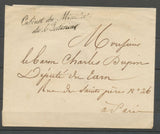 Cabinet du Ministre
de l'Intérieur
Monsieur
le Baron Charles Dupin
Député du Tarn
Rue des Saints pères N° 26
à Paris